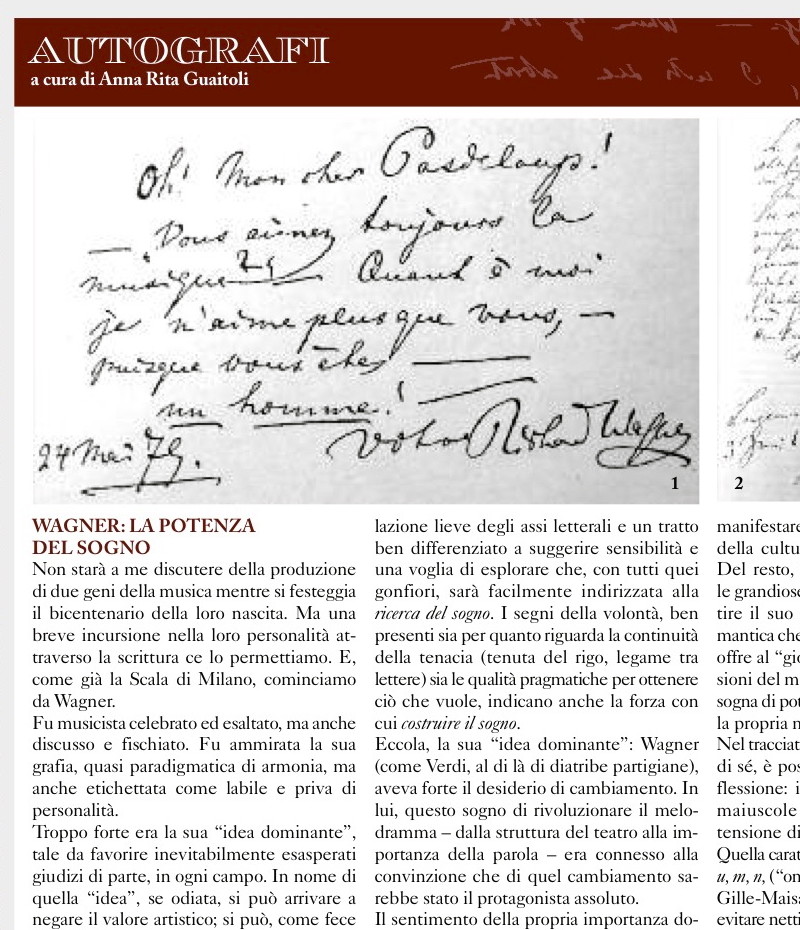 AUTOGRAFI
a cura di Anna Rita Guaitoli
Oh! Mon cher Pasdeloup!
— Vous aimez toujours la
musique? — Quant à moi
je n'aime plus que vous, —
puisque vous êtes —
un homme! —
24 Mai 79.
Votre Richard Wagner
1
2
WAGNER: LA POTENZA
DEL SOGNO
Non starà a me discutere della produzione
di due geni della musica mentre si festeggia
il bicentenario della loro nascita. Ma una
breve incursione nella loro personalità at-
traverso la scrittura ce lo permettiamo. E,
come già la Scala di Milano, cominciamo
da Wagner.
Fu musicista celebrato ed esaltato, ma anche
discusso e fischiato. Fu ammirata la sua
grafia, quasi paradigmatica di armonia, ma
anche etichettata come labile e priva di
personalità.
Troppo forte era la sua “idea dominante”,
tale da favorire inevitabilmente esasperati
giudizi di parte, in ogni campo. In nome di
quella “idea”, se odiata, si può arrivare a
negare il valore artistico; si può, come fece
lazione lieve degli assi letterali e un tratto
ben differenziato a suggerire sensibilità e
una voglia di esplorare che, con tutti quei
gonfiori, sarà facilmente indirizzata alla
ricerca del sogno. I segni della volontà, ben
presenti sia per quanto riguarda la continuità
della tenacia (tenuta del rigo, legame tra
lettere) sia le qualità pragmatiche per ottenere
ciò che vuole, indicano anche la forza con
cui costruire il sogno.
Eccola, la sua “idea dominante”: Wagner
(come Verdi, al di là di diatribe partigiane),
aveva forte il desiderio di cambiamento. In
lui, questo sogno di rivoluzionare il melo-
dramma – dalla struttura del teatro alla im-
portanza della parola – era connesso alla
convinzione che di quel cambiamento sa-
rebbe stato il protagonista assoluto.
Il sentimento della propria importanza do-
manifestare
della cultu
Del resto,
le grandiose
tire il suo
mantica che
offre al “gio
sioni del m
sogna di pot
la propria m
Nel tracciat
di sé, è pos
flessione: i
maiuscole
tensione di
Quella carat
u, m, n, (“on
Gille-Maisa
evitare netti